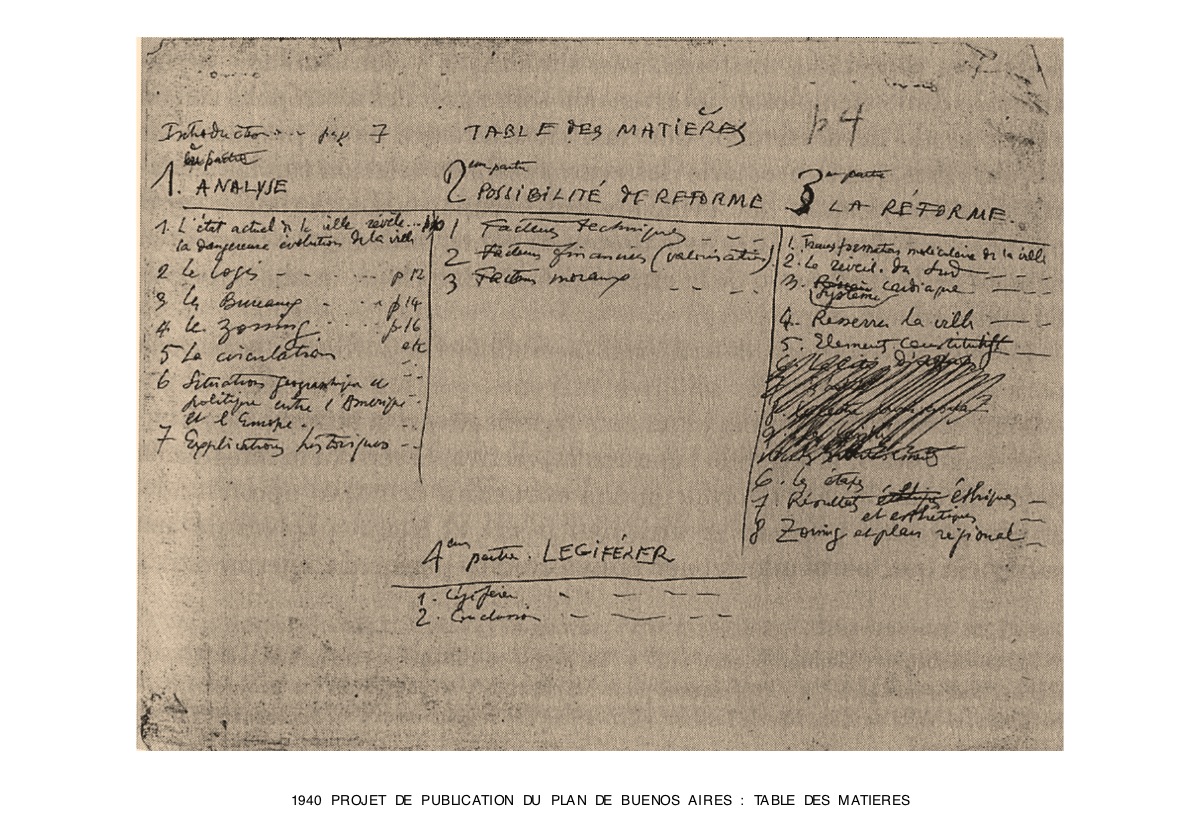 Introduction - - page 7
TABLE DES MATIÈRES
p 4
1. ère partie
ANALYSE
1. L'état actuel de la ville révèle...
la dangereuse évolution de la ville
2 le logis - - p 12
3 les Bureaux - - p 14
4 le zoning - - - p. 16
5 La circulation etc
6 Situation géographique et
politique entre l'Amérique
et l'Europe - -
7 Explications historiques - -
2 ème partie
POSSIBILITÉ DE REFORME
1 Facteurs techniques - - -
2 Facteurs financiers (valorisation)
3 Facteurs moraux - - -
3 ème partie
LA RÉFORME.
1. Transformation moléculaire de la ville
2. Le réveil du Sud
3. cardiaque
Système
4. Resserrer la ville
5. Element constitutifs
6. Les étapes
7. Résultats éthiques
et esthétiques
8 Zoning et plan régional
4 ème partie. LEGIFÉRER
1. Légiférer - - - -
2. Conclusion - - - -
1940 PROJET DE PUBLICATION DU PLAN DE BUENOS AIRES : TABLE DES MATIERES